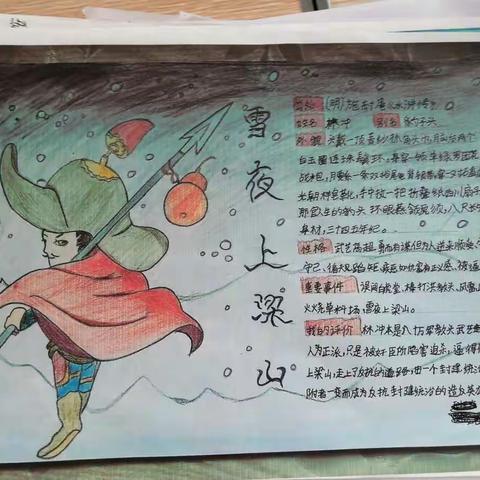 雪夜上梁山
出处 (明)施耐庵《水浒传》
姓名 林冲 别名 豹子头
外貌 头戴一顶青纱抓角头巾,脑后两个
白玉圈连珠鬓环,身穿一领单绿罗团花
战袍,腰系一条双
朝样皂靴,手中执一把折叠纸西川扇子
那官生的豹头环眼,燕颔虎须,八尺长
身材,三十四五年纪。
性格 武艺高超,勇而有谋但为人逆来顺受,
守己,循规蹈矩,
重要事件 误闯白虎堂,棒打洪教头,风雪山
火烧草料场,雪夜上梁山。
我的评价 林冲本是八十万禁军教头武艺
人为正派,只是被奸臣所陷害追杀,逼得
上梁山,走上了反抗的道路,由一个封建统治
附者一变而成为反抗封建统治的造反英雄